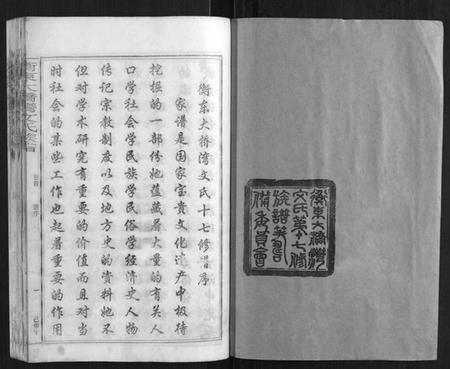 衡东大桥湾文氏十七修谱序
家谱是国家宝贵文化遗产中极待
挖掘的一部份她蕴藏着大量的有关人
口学社会学民族学民俗学经济史人物
传记宗教制度以及地方史的资料她不
但对学术研究有重要的价值而且对当
时社会的某些工作也起着重要的作用
衡东大桥湾文氏族谱
卷首
谱序
一
己卯年
衡东大桥湾
文氏第十七修
族谱筹
备委员会